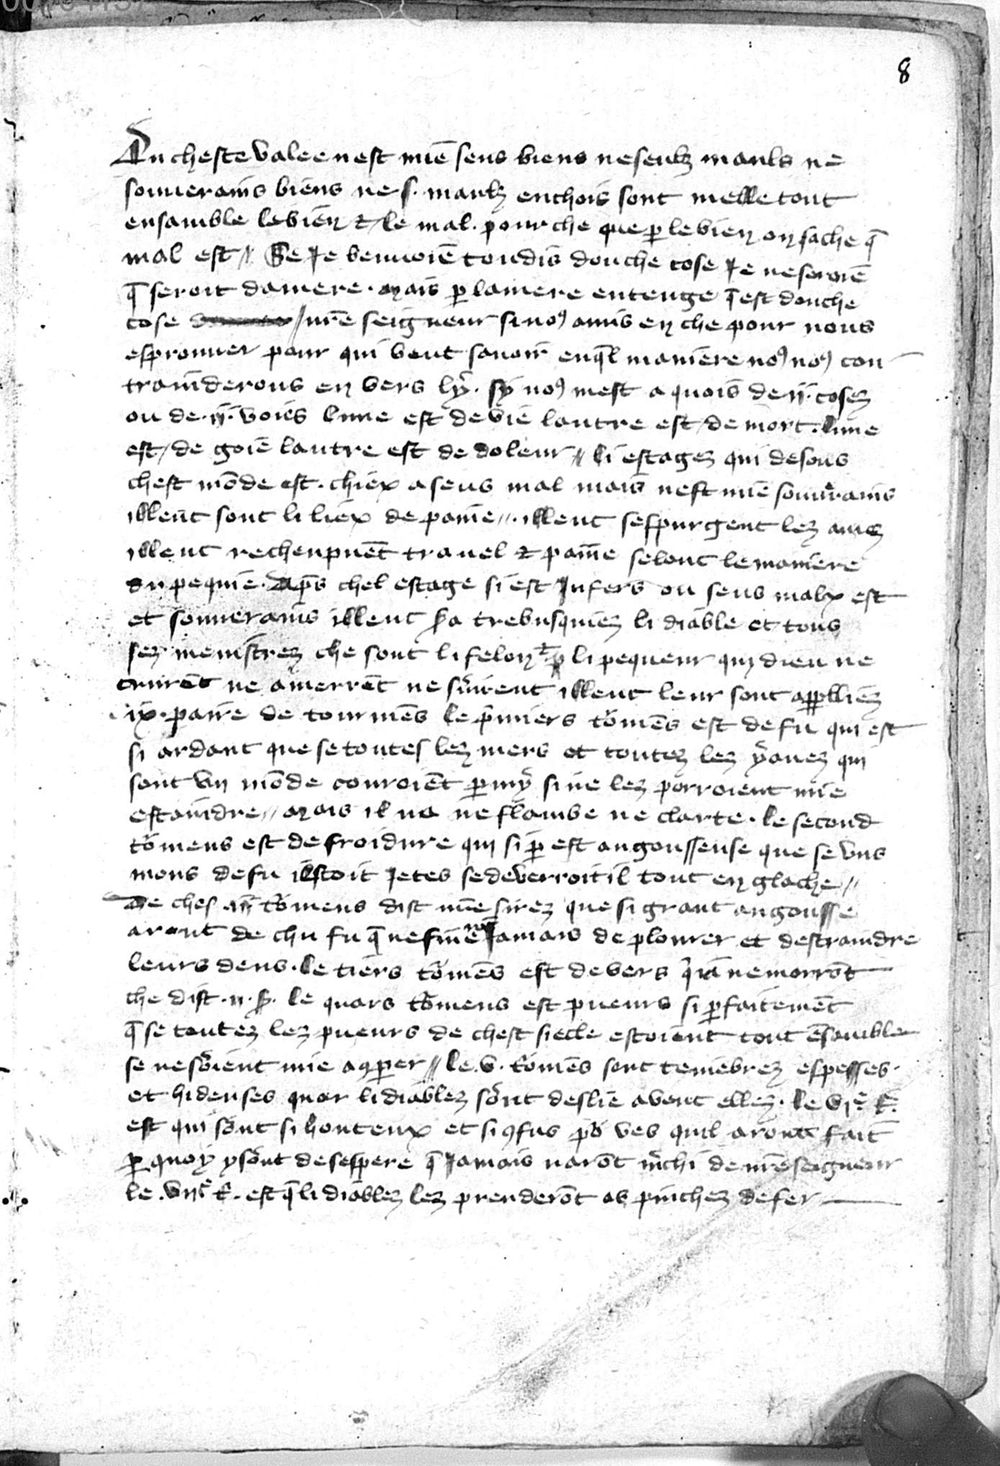 8
En cheste valee nest mie seus biens ne seulz mauls ne
souverains biens ne s. maulz enchois sont melle tout
ensamble le bien & le mal. pour che que p le bien on sache q̄
mal est // Se Je bevuoie toudis douche cose Je ne saroie
q̄ seroit damere. mais p lamere entenge q̄ est douche
cose // nr̄e seigneur si noꝰ a mis en che pour nous
esprouver pour qui veut savoir en q̄l maniere noꝰ noꝰ con
trainderons en vers ly. sy noꝰ mest a quois de .ij. cosez
ou de .ij. voies lune est de vie lautre est de mort. lune
est de goie lautre est de doleur // li estagez qui desous
chest mōde est. chiex a seus mal mais nest mie souv̄ains
illeuc sont li liex de paine //. illeuc sespurgent lez amez
illeuc recheupuēt travel & paine selonc le maniere
du pequie. Ap̄s chel estage si est Infers ou seus malx est
et souverains illeuc s̄a trebusquiez li diable et tous
sez menistrez che sont li felon & li pequeur qui dieu ne
crurēt ne amerrēt ne s̄uirent illeuc leur sont appelliez
.ix. paire de tourmēs le p̄miers tōmēs est de fu qui est
si ardant que se toutes lez mers et toutez lez yavez qui
sont un mōde couroiēt p my si ne lez porroient mie
estaindre // mais il na ne flambe ne clarte. le second
tōmens est de froidure qui si p est angousseuse que se uns
mons de fu i estoit Jetes se deverroit il tout en glache //
De ches .ij. tōmens dist nr̄e sirez que si grant angousse
aront de chu fu q̄ ne finerōt Jamais de plourer et destraindre
leurs dens. le tiers tōmēs est de vers q̄ Ja ne morrōt
che dist .n. s̄. le quars tōmens est pueurs si p faitemēt
q̄ se toutez lez pueurs de chest siecle estoiēnt tout ēsamble
se ne s̄oient mie a op̄er // le .v. tōmēs sont tenebrez espesses.
et hideuses quar li diablez s̄ont deslie avent ellez. le vi.e t̄.
est qui s̄ont si honteux et si ꝯfus p̄ lez ves quil aront fait
p quoy y s̄ont desespere q̄ Jamais narōt m̄chi de nr̄e seigneur
le .vij.e t̄. est q̄ li diablez lez prenderōt as pinchez de fer